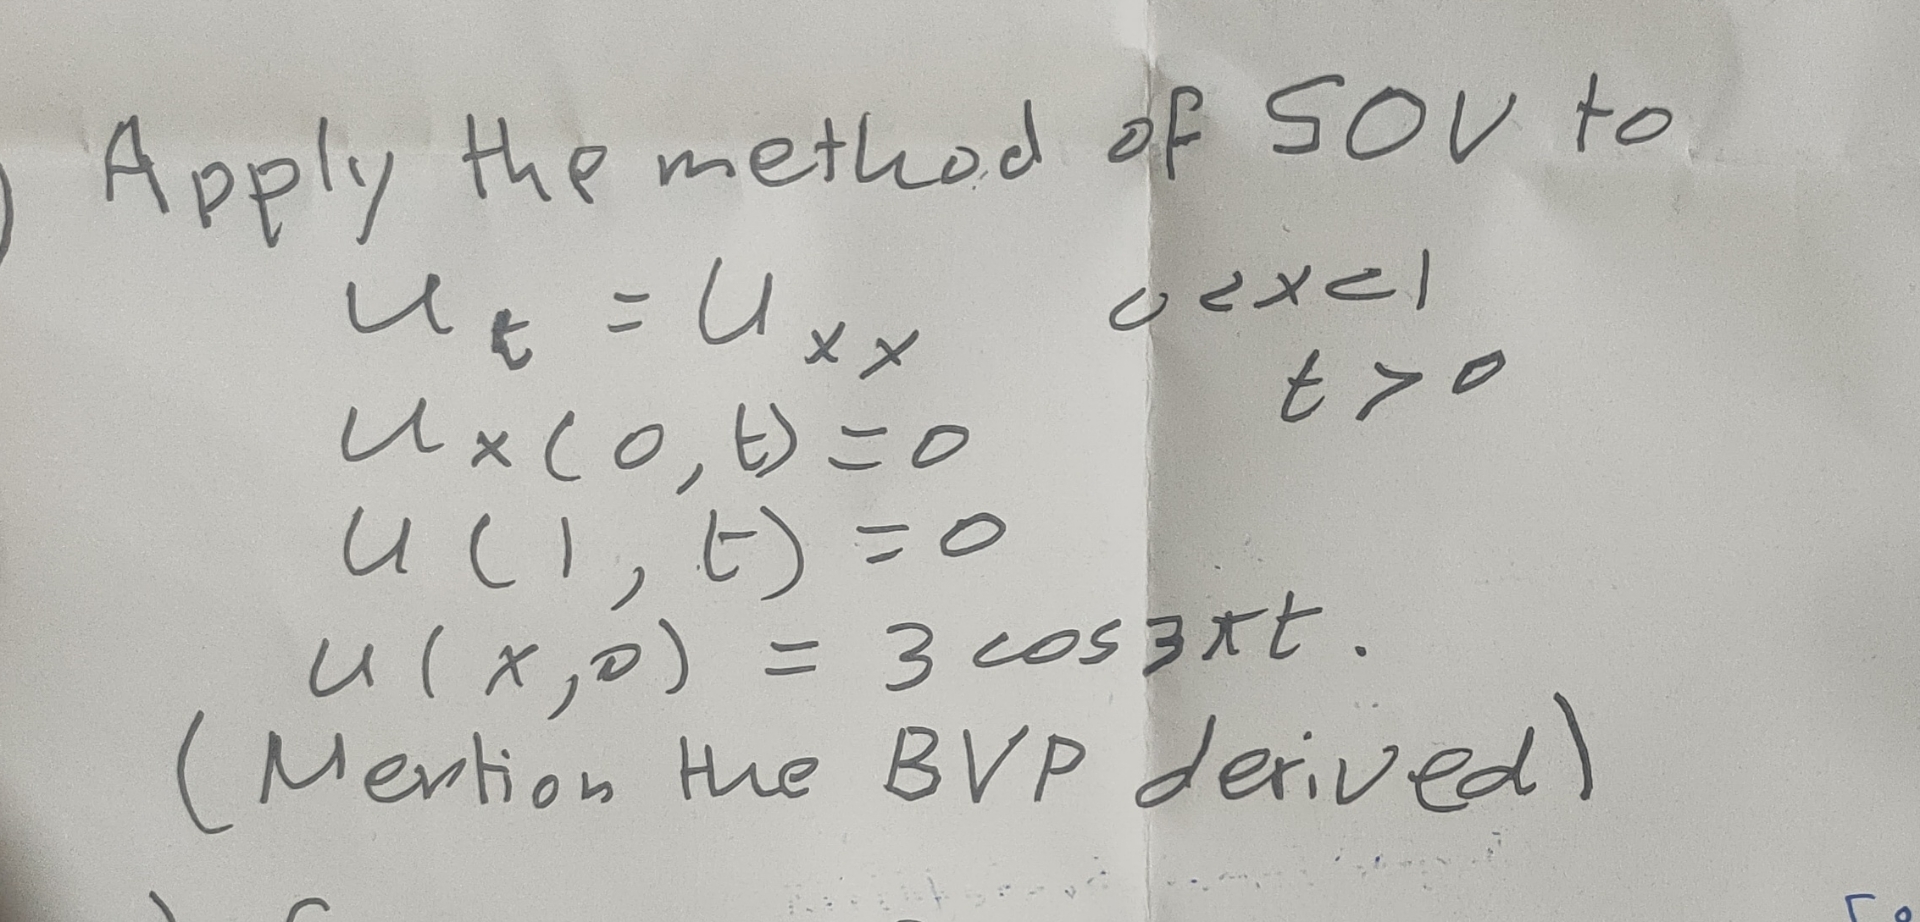 Apply the method of SOV to
u_t = u_xx 0<x<1
t>0
u_x(0,t)=0
u(1,t)=0
u(x,0) = 3 cos 3πt.
(Mention the BVP derived)